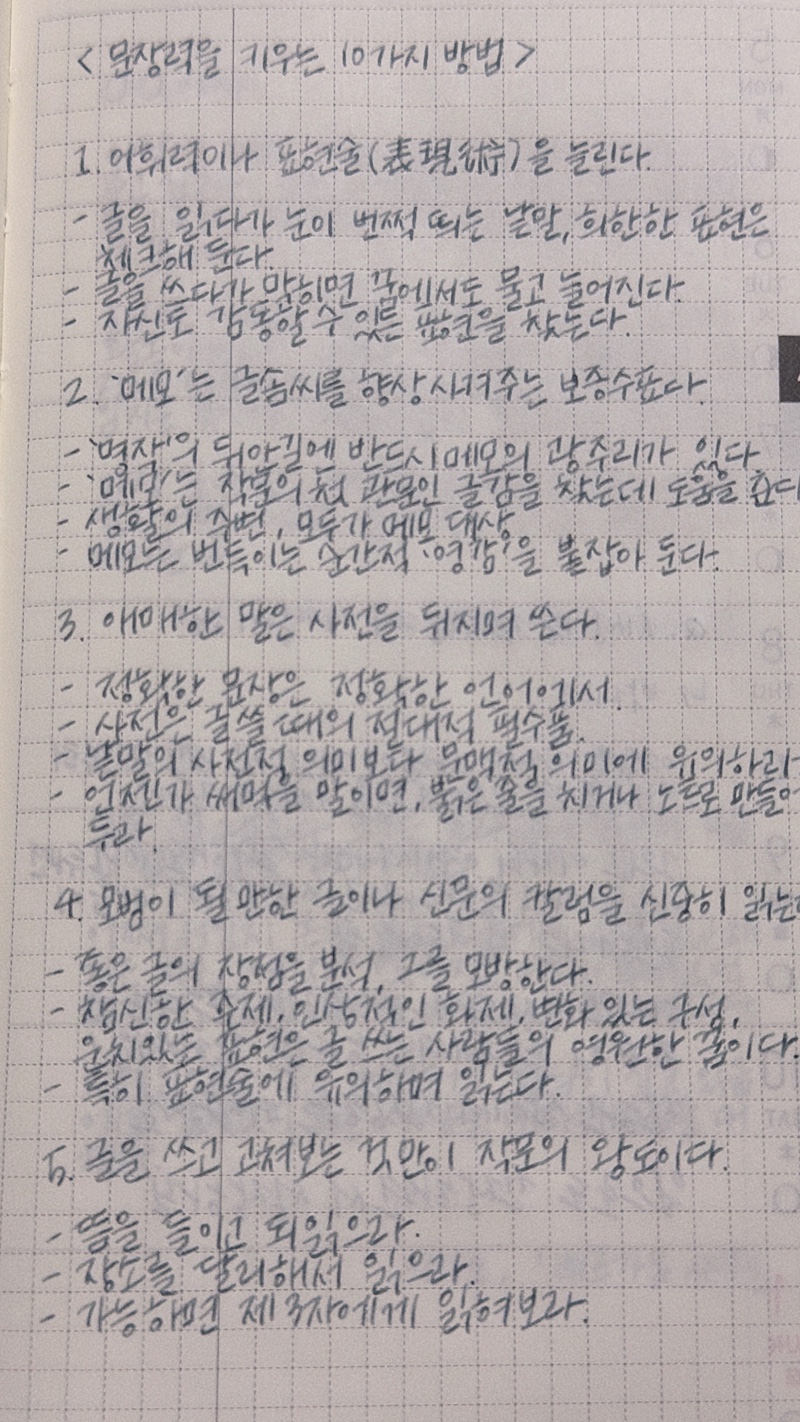 < 문장력을 키우는 10가지 방법 >
1. 어휘력이나 표현술(表現術)을 늘린다.
- 글을 읽다가 눈이 번쩍 띄는 낱말, 희한한 표현은
체크해 둔다.
- 글을 쓰다가 막히면 꿈에서도 물고 늘어진다.
- 자신도 감동할 수 있는 표현을 찾는다.
2. '메모'는 글솜씨를 향상시켜주는 보증수표다.
- '명작'의 뒤안길엔 반드시 메모의 광주리가 있다
- '메모'는 작문의 첫 관문인 글감을 찾는데 도움을 준다
- 생활의 주변, 모두가 메모 대상
- 메모는 번득이는 순간적 '영감'을 붙잡아 둔다.
3. 애매한 말은 사전을 뒤지며 쓴다.
- 정확한 문장은 정확한 언어에서.
- 사전은 글쓸 때의 절대적 필수품.
- 낱말의 사전적 의미보다 문맥적 의미에 유의하라
- 언젠가 써먹을 말이면, 붉은 줄을 치거나 노트로 만들어
두라.
4. 모범이 될 만한 글이나 신문의 칼럼을 신중히 읽는
- 좋은 글의 장점을 분석, 그를 모방한다.
- 참신한 주제, 인상적인 화제, 변화 있는 구성,
운치있는 표현은 글 쓰는 사람들의 영원한 꿈이다.
- 특히 표현술에 유의하며 읽는다.
5. 글을 쓰고 고쳐보는 것만이 작문의 왕도이다.
- 뜸을 들이고 되읽으라.
- 장소를 달리해서 읽으라.
- 가능하면 제3자에게 읽혀보라.